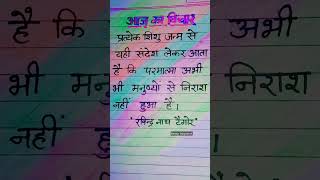 आज का विचार
प्रत्येक शिशु जन्म से
यही संदेश लेकर आता
है कि परमात्मा अभी
भी मनुष्यो से निराश
नहीं हुआ है।
"रविन्द्र नाथ टैगोर"
है कि
भी मनु
नहीं
अभी
निराश